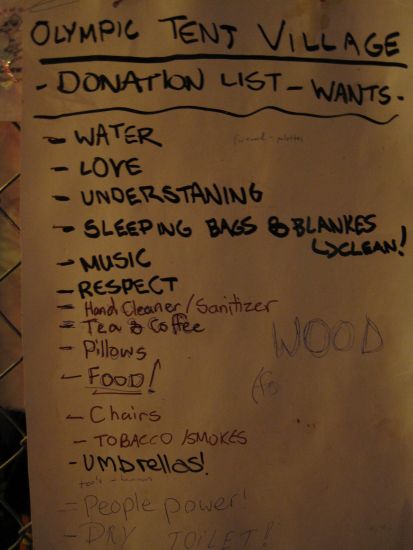 OLYMPIC TENT VILLAGE
- DONATION LIST - WANTS -
- WATER
- LOVE
- UNDERSTANING
- SLEEPING BAGS & BLANKES
↳CLEAN!
- MUSIC
- RESPECT
- Hand Cleaner/Sanitizer
- Tea & Coffee
- Pillows
WOOD
- FOOD!
- Chairs
- TOBACCO/SMOKES
- UMbrellas!
- People power!
- DRY TOILET!